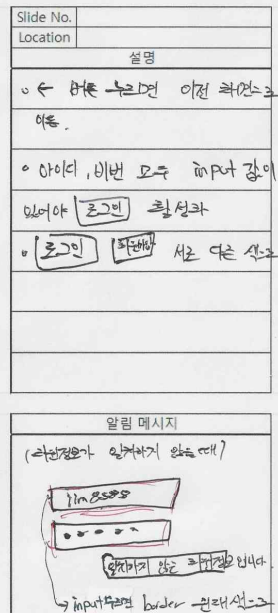 Slide No.
Location
설명
○ ← 버튼 누르면 이전 화면으로
이동.
○ 아이디, 비번 모두 input 값이
있어야 로그인 활성화
○ 로그인 회원가입 서로 다른 색으로
알림 메시지
(회원정보가 일치하지 않을 때)
일치하지 않는 회원정보입니다.
→ input 누르면 border 원래 색으로